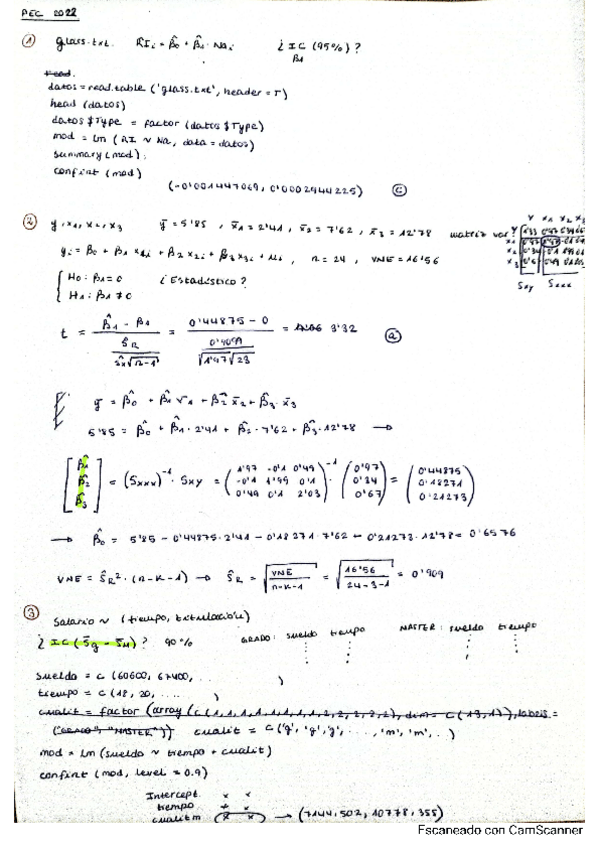 PEC 2022
① glass.txt. RIi = β̂0 + β̂1 · Nai ¿IC (95%)?
β1
read.
datos = read.table ('glass.txt', header = T)
head (datos)
datos $ Type = factor (datos $ Type)
mod = lm (RI ~ Na, data = datos)
summary (mod)
confint (mod)
(-0'001447069, 0'0002944225) ⓒ
② y, x1, x2, x3 ȳ = 5'85 , x̄1 = 2'41 , x̄2 = 7'62 , x̄3 = 12'78 matriz var
Y X1 X2 X3
Sxy Sxxx
yi = β0 + β1 x1i + β2 x2i + β3 x3i + ui , n = 24 , VNE = 16'56
H0 : β1 = 0 ¿Estadístico?
H1 : β1 ≠ 0
t = (β̂1 - β1) / (ŜR / (ŝx √(n-1))) = (0'44875 - 0) / (0'909 / (√1'97 √23)) = 3'32 ⓐ
ȳ = β̂0 + β̂1 x̄1 + β̂2 x̄2 + β̂3 · x̄3
5'85 = β̂0 + β̂1 · 2'41 + β̂2 · 7'62 + β̂3 · 12'78 →
[β̂1 β̂2 β̂3] = (Sxxx)⁻¹ · Sxy = (1'97 -0'1 0'49 -0'1 1'99 0'1 0'49 0'1 2'03)⁻¹ · (0'97 0'34 0'67) = (0'44875 0'18271 0'21273)
→ β̂0 = 5'85 - 0'44875 · 2'41 - 0'18271 · 7'62 - 0'21273 · 12'78 = 0'6576
VNE = ŜR² · (n-k-1) → ŜR = √(VNE / (n-k-1)) = √(16'56 / (24-3-1)) = 0'909
③ Salario ~ (tiempo, titulación)
¿IC (S̄g - S̄M)? 90% GRADO: sueldo tiempo MASTER: sueldo tiempo
sueldo = c (60600, 67400, ... )
tiempo = c (18, 20, ... )
cualit = factor (array (c (1,1,1,1,1,1,1,2,2,2,2), dim = c (13,1)), labels =
("GRADO", "MASTER")) cualit = c ('g', 'g', 'g', ..., 'm', 'm', ..)
mod = lm (sueldo ~ tiempo + cualit)
confint (mod, level = 0.9)
Intercept. x x
tiempo x x
cualitm x x → (7144,502, 10778,355)
Escaneado con CamScanner